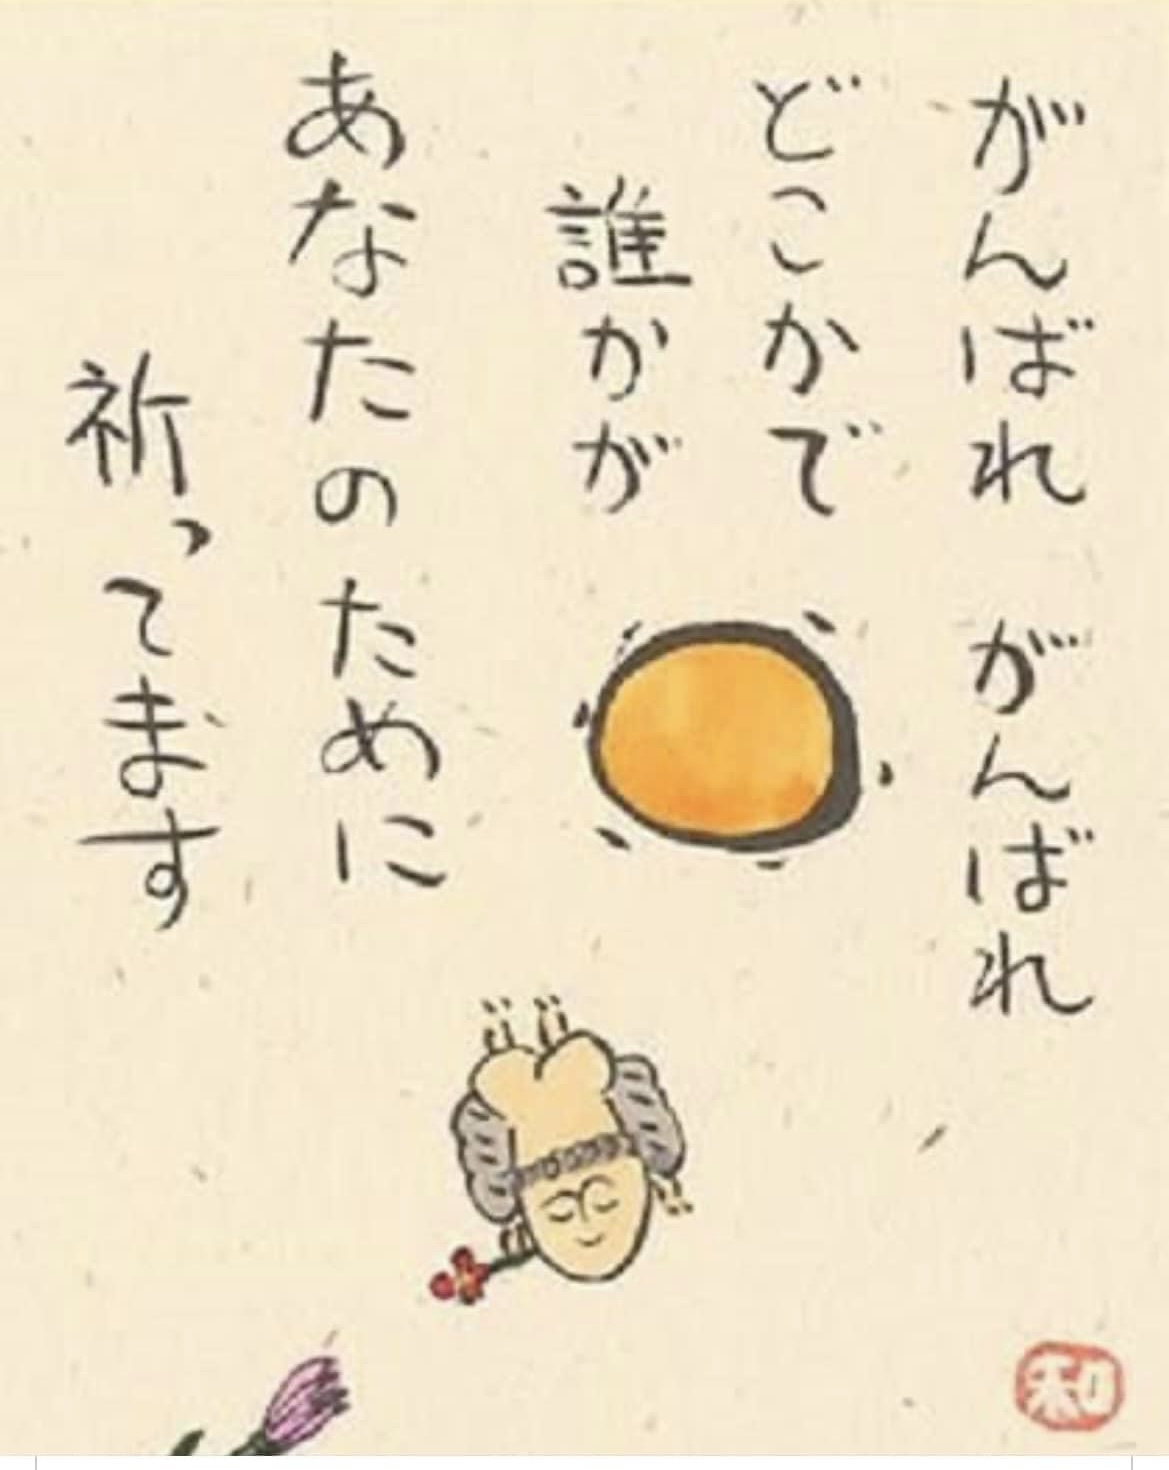 がんばれ がんばれ
どこかで
誰かが
あなたのために
祈ってます
和